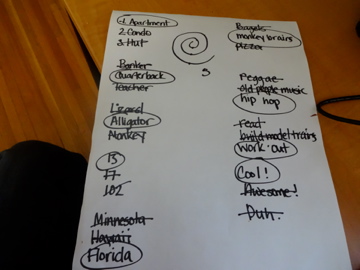 1. Apartment
2. Condo
3. Hut
Banker
Quarterback
Teacher
Lizard
Alligator
Monkey
13
17
102
Minnesota
Hawaii
Florida
5
Bagels
monkey brains
pizza
Reggae
old people music
hip hop
read
build model trains
work out
Cool!
Awesome!
Duh